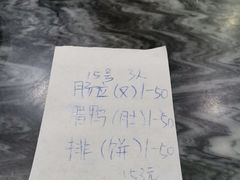 15号 3人
肠应(叉)1-50
肖鸭(肚)1-50
排(饼)1-50
153元